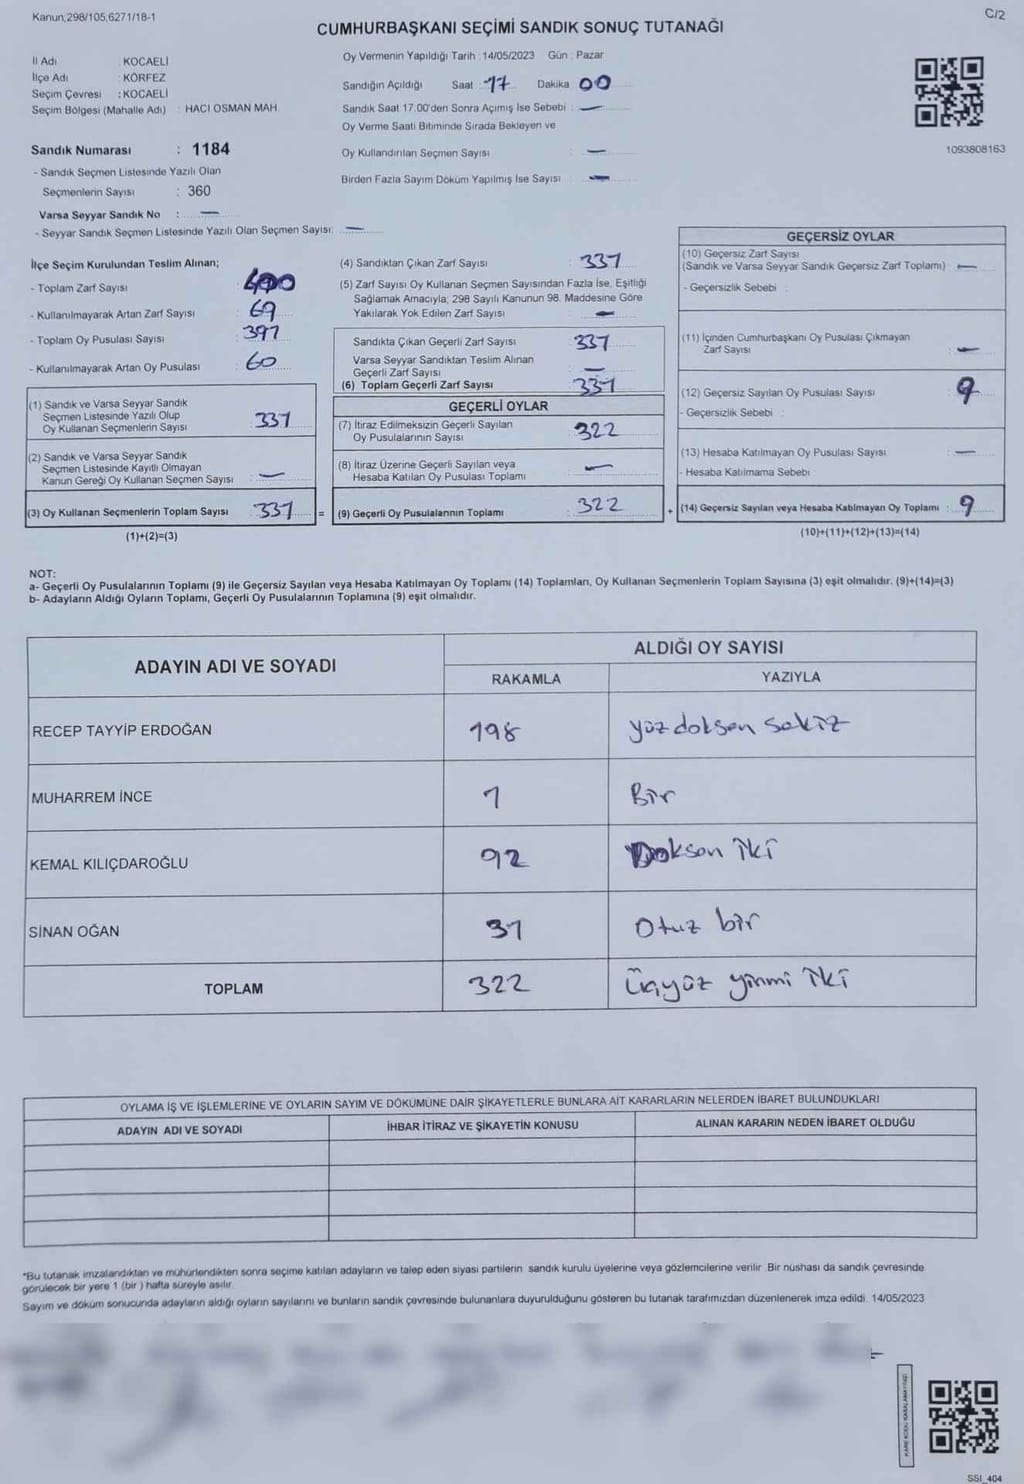 Kanun;298/105;6271/18-1
C/2
CUMHURBAŞKANI SEÇİMİ SANDIK SONUÇ TUTANAĞI
İl Adı : KOCAELİ
İlçe Adı : KÖRFEZ
Seçim Çevresi : KOCAELİ
Seçim Bölgesi (Mahalle Adı) : HACI OSMAN MAH.
Sandık Numarası : 1184
- Sandık Seçmen Listesinde Yazılı Olan
Seçmenlerin Sayısı : 360
Varsa Seyyar Sandık No : —
- Seyyar Sandık Seçmen Listesinde Yazılı Olan Seçmen Sayısı: —
Oy Vermenin Yapıldığı Tarih : 14/05/2023 Gün : Pazar
Sandığın Açıldığı Saat 17 Dakika 00
Sandık Saat 17:00'den Sonra Açımış İse Sebebi : —
Oy Verme Saati Bitiminde Sırada Bekleyen ve
Oy Kullandırılan Seçmen Sayısı : —
Birden Fazla Sayım Döküm Yapılmış İse Sayısı : —
1093808163
İlçe Seçim Kurulundan Teslim Alınan;
- Toplam Zarf Sayısı : 400
- Kullanılmayarak Artan Zarf Sayısı : 69
- Toplam Oy Pusulası Sayısı : 397
- Kullanılmayarak Artan Oy Pusulası : 60
(1) Sandık ve Varsa Seyyar Sandık
Seçmen Listesinde Yazılı Olup
Oy Kullanan Seçmenlerin Sayısı : 331
(2) Sandık ve Varsa Seyyar Sandık
Seçmen Listesinde Kayıtlı Olmayan
Kanun Gereği Oy Kullanan Seçmen Sayısı : —
(3) Oy Kullanan Seçmenlerin Toplam Sayısı : 331 =
(1)+(2)=(3)
(4) Sandıktan Çıkan Zarf Sayısı : 331
(5) Zarf Sayısı Oy Kullanan Seçmen Sayısından Fazla İse, Eşitliği
Sağlamak Amacıyla; 298 Sayılı Kanunun 98. Maddesine Göre
Yakılarak Yok Edilen Zarf Sayısı : —
Sandıkta Çıkan Geçerli Zarf Sayısı : 331
Varsa Seyyar Sandıktan Teslim Alınan
Geçerli Zarf Sayısı : —
(6) Toplam Geçerli Zarf Sayısı : 331
GEÇERLİ OYLAR
(7) İtiraz Edilmeksizin Geçerli Sayılan
Oy Pusulalarının Sayısı : 322
(8) İtiraz Üzerine Geçerli Sayılan veya
Hesaba Katılan Oy Pusulası Toplamı : —
(9) Geçerli Oy Pusulalarının Toplamı : 322 +
GEÇERSİZ OYLAR
(10) Geçersiz Zarf Sayısı
(Sandık ve Varsa Seyyar Sandık Geçersiz Zarf Toplamı) : —
- Geçersizlik Sebebi :
(11) İçinden Cumhurbaşkanı Oy Pusulası Çıkmayan
Zarf Sayısı : —
(12) Geçersiz Sayılan Oy Pusulası Sayısı : 9
- Geçersizlik Sebebi :
(13) Hesaba Katılmayan Oy Pusulası Sayısı : —
- Hesaba Katılmama Sebebi :
(14) Geçersiz Sayılan veya Hesaba Katılmayan Oy Toplamı : 9
(10)+(11)+(12)+(13)=(14)
NOT:
a- Geçerli Oy Pusulalarının Toplamı (9) ile Geçersiz Sayılan veya Hesaba Katılmayan Oy Toplamı (14) Toplamları, Oy Kullanan Seçmenlerin Toplam Sayısına (3) eşit olmalıdır. (9)+(14)=(3)
b- Adayların Aldığı Oyların Toplamı, Geçerli Oy Pusulalarının Toplamına (9) eşit olmalıdır.
ADAYIN ADI VE SOYADI
ALDIĞI OY SAYISI
RAKAMLA YAZIYLA
RECEP TAYYİP ERDOĞAN 198 yüz doksan sekiz
MUHARREM İNCE 1 Bir
KEMAL KILIÇDAROĞLU 92 Doksan iki
SİNAN OĞAN 31 Otuz bir
TOPLAM 322 Üçyüz yirmi iki
OYLAMA İŞ VE İŞLEMLERİNE VE OYLARIN SAYIM VE DÖKÜMÜNE DAİR ŞİKAYETLERLE BUNLARA AİT KARARLARIN NELERDEN İBARET BULUNDUKLARI
ADAYIN ADI VE SOYADI İHBAR İTİRAZ VE ŞİKAYETİN KONUSU ALINAN KARARIN NEDEN İBARET OLDUĞU
*Bu tutanak imzalandıktan ve mühürlendikten sonra seçime katılan adayların ve talep eden siyasi partilerin sandık kurulu üyelerine veya gözlemcilerine verilir. Bir nüshası da sandık çevresinde
görülecek bir yere 1 (bir ) hafta süreyle asılır.
Sayım ve döküm sonucunda adayların aldığı oyların sayılarını ve bunların sandık çevresinde bulunanlara duyurulduğunu gösteren bu tutanak tarafımızdan düzenlenerek imza edildi. 14/05/2023
SSI_404